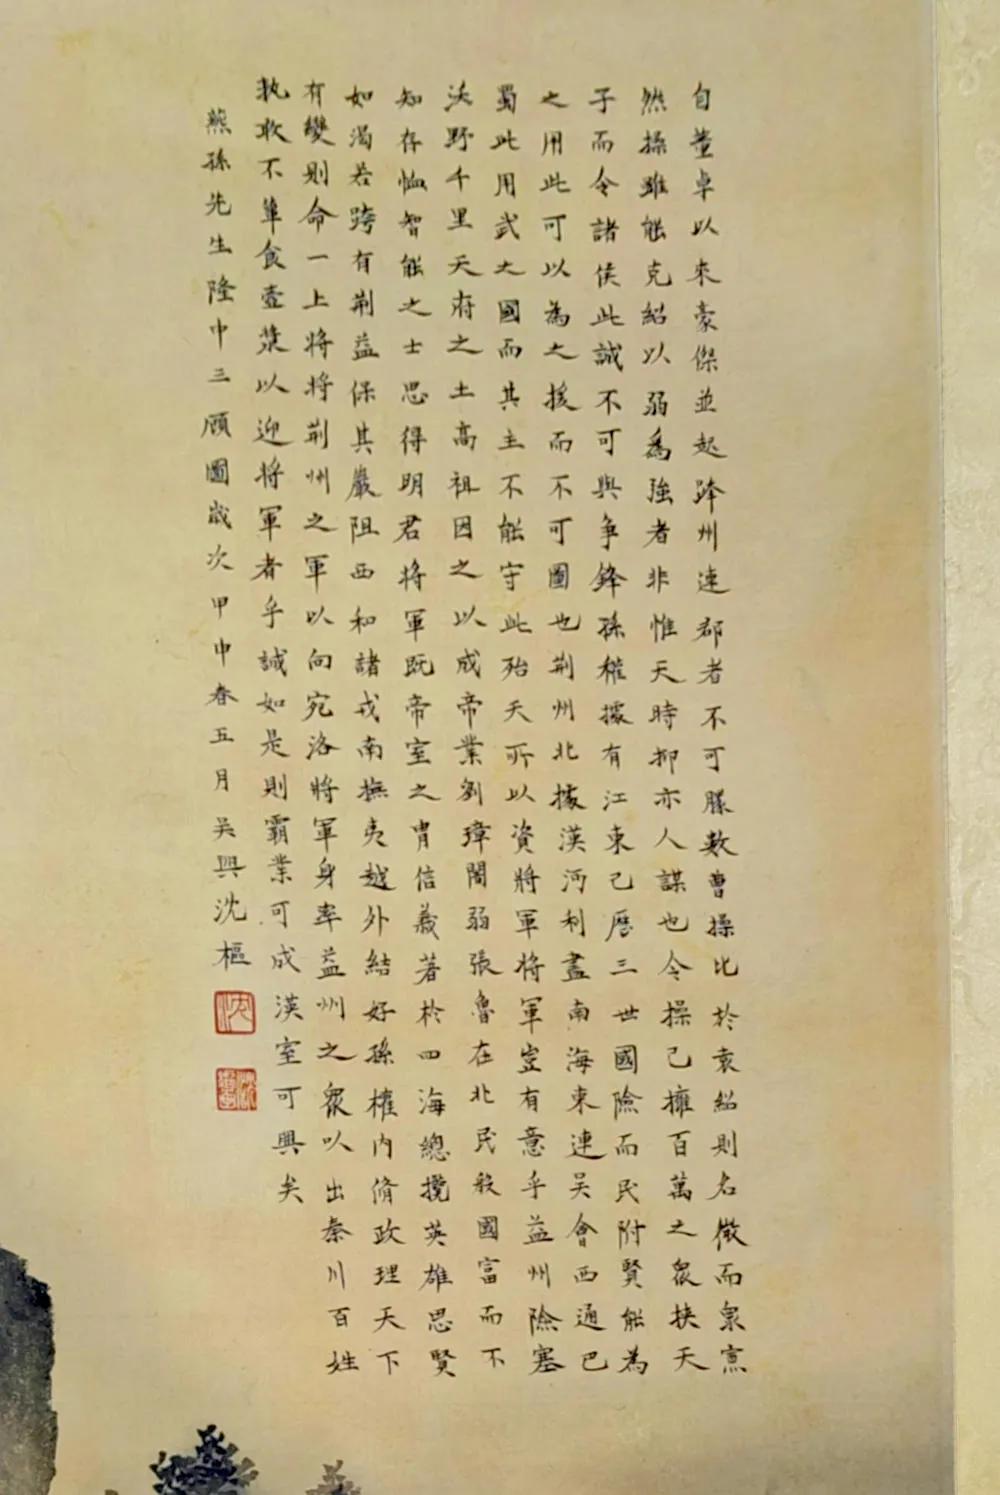 自董卓以來豪傑並起跨州連郡者不可勝數曹操比於袁紹則名微而衆寡
然操雖能克紹以弱為強者非惟天時抑亦人謀也今操已擁百萬之衆挾天
子而令諸侯此誠不可與爭鋒孫權據有江東已歷三世國險而民附賢能為
之用此可以為之援而不可圖也荊州北據漢沔利盡南海東連吳會西通巴
蜀此用武之國而其主不能守此殆天所以資將軍將軍豈有意乎益州險塞
沃野千里天府之土高祖因之以成帝業劉璋闇弱張魯在北民殷國富而不
知存恤智能之士思得明君將軍既帝室之冑信義著於四海總攬英雄思賢
如渴若跨有荊益保其巖阻西和諸戎南撫夷越外結好孫權內脩政理天下
有變則命一上將將荊州之軍以向宛洛將軍身率益州之衆以出秦川百姓
執敢不簞食壺漿以迎將軍者乎誠如是則霸業可成漢室可興矣
燕孫先生隆中三顧圖歲次甲申春五月吳興沈樞
沈